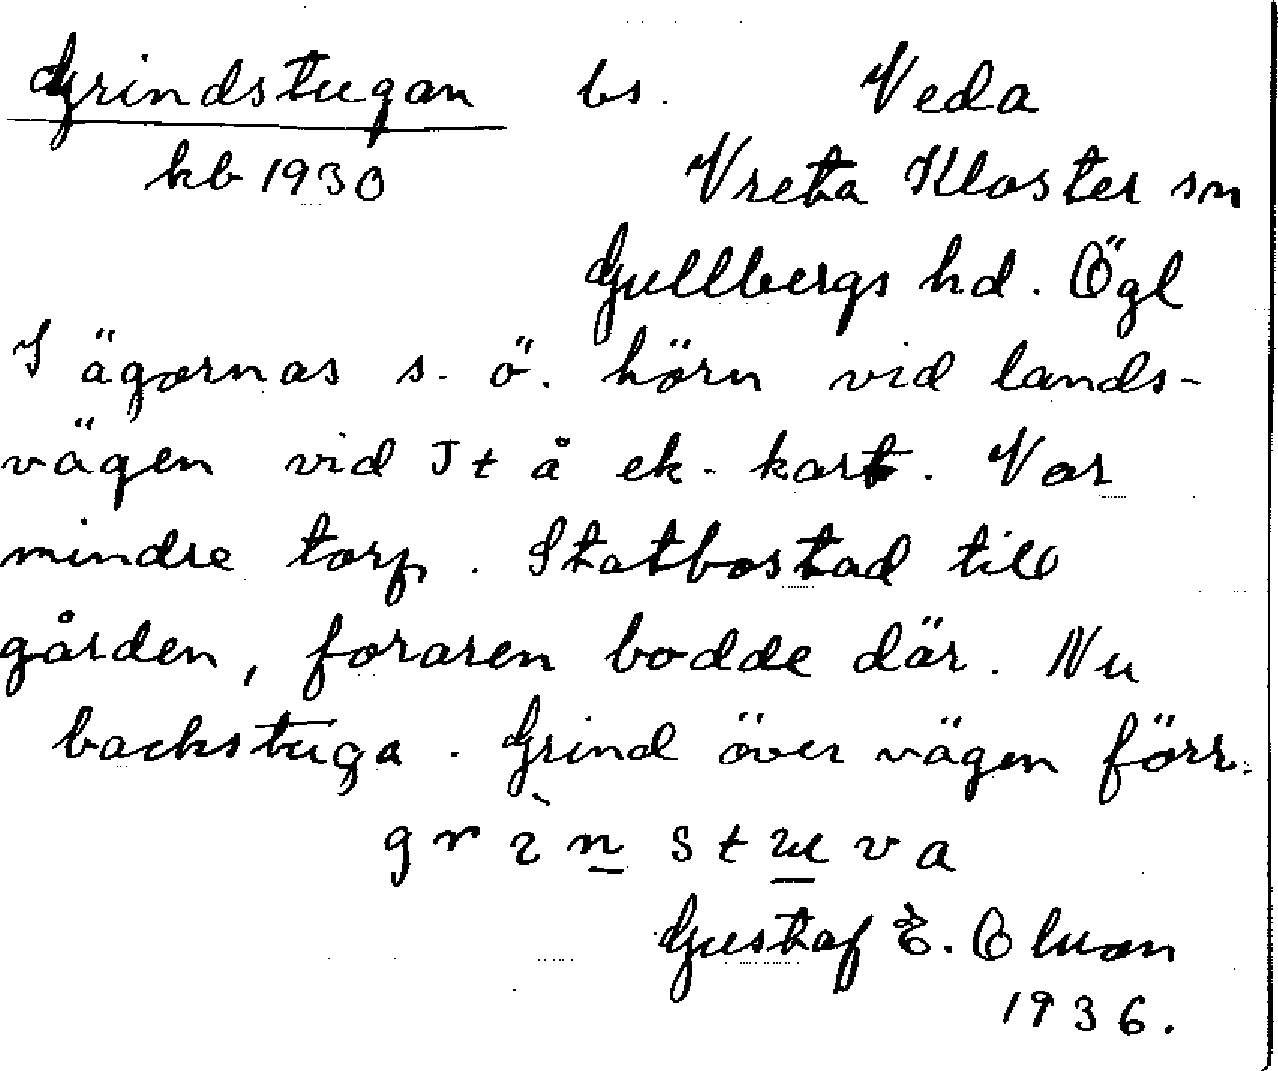 Grindstugan bs. Veda
kb 1930 Vreta Kloster sn
Gullbergs hd. Ögl
I ägornas s. ö. hörn vid lands-
vägen vid St å ek. kart. Var
mindre torp. Statbostad till
gården, foraren bodde där. Nu
backstuga. Grind över vägen förr.
grìn stuva
Gustaf E. Olson
1936.